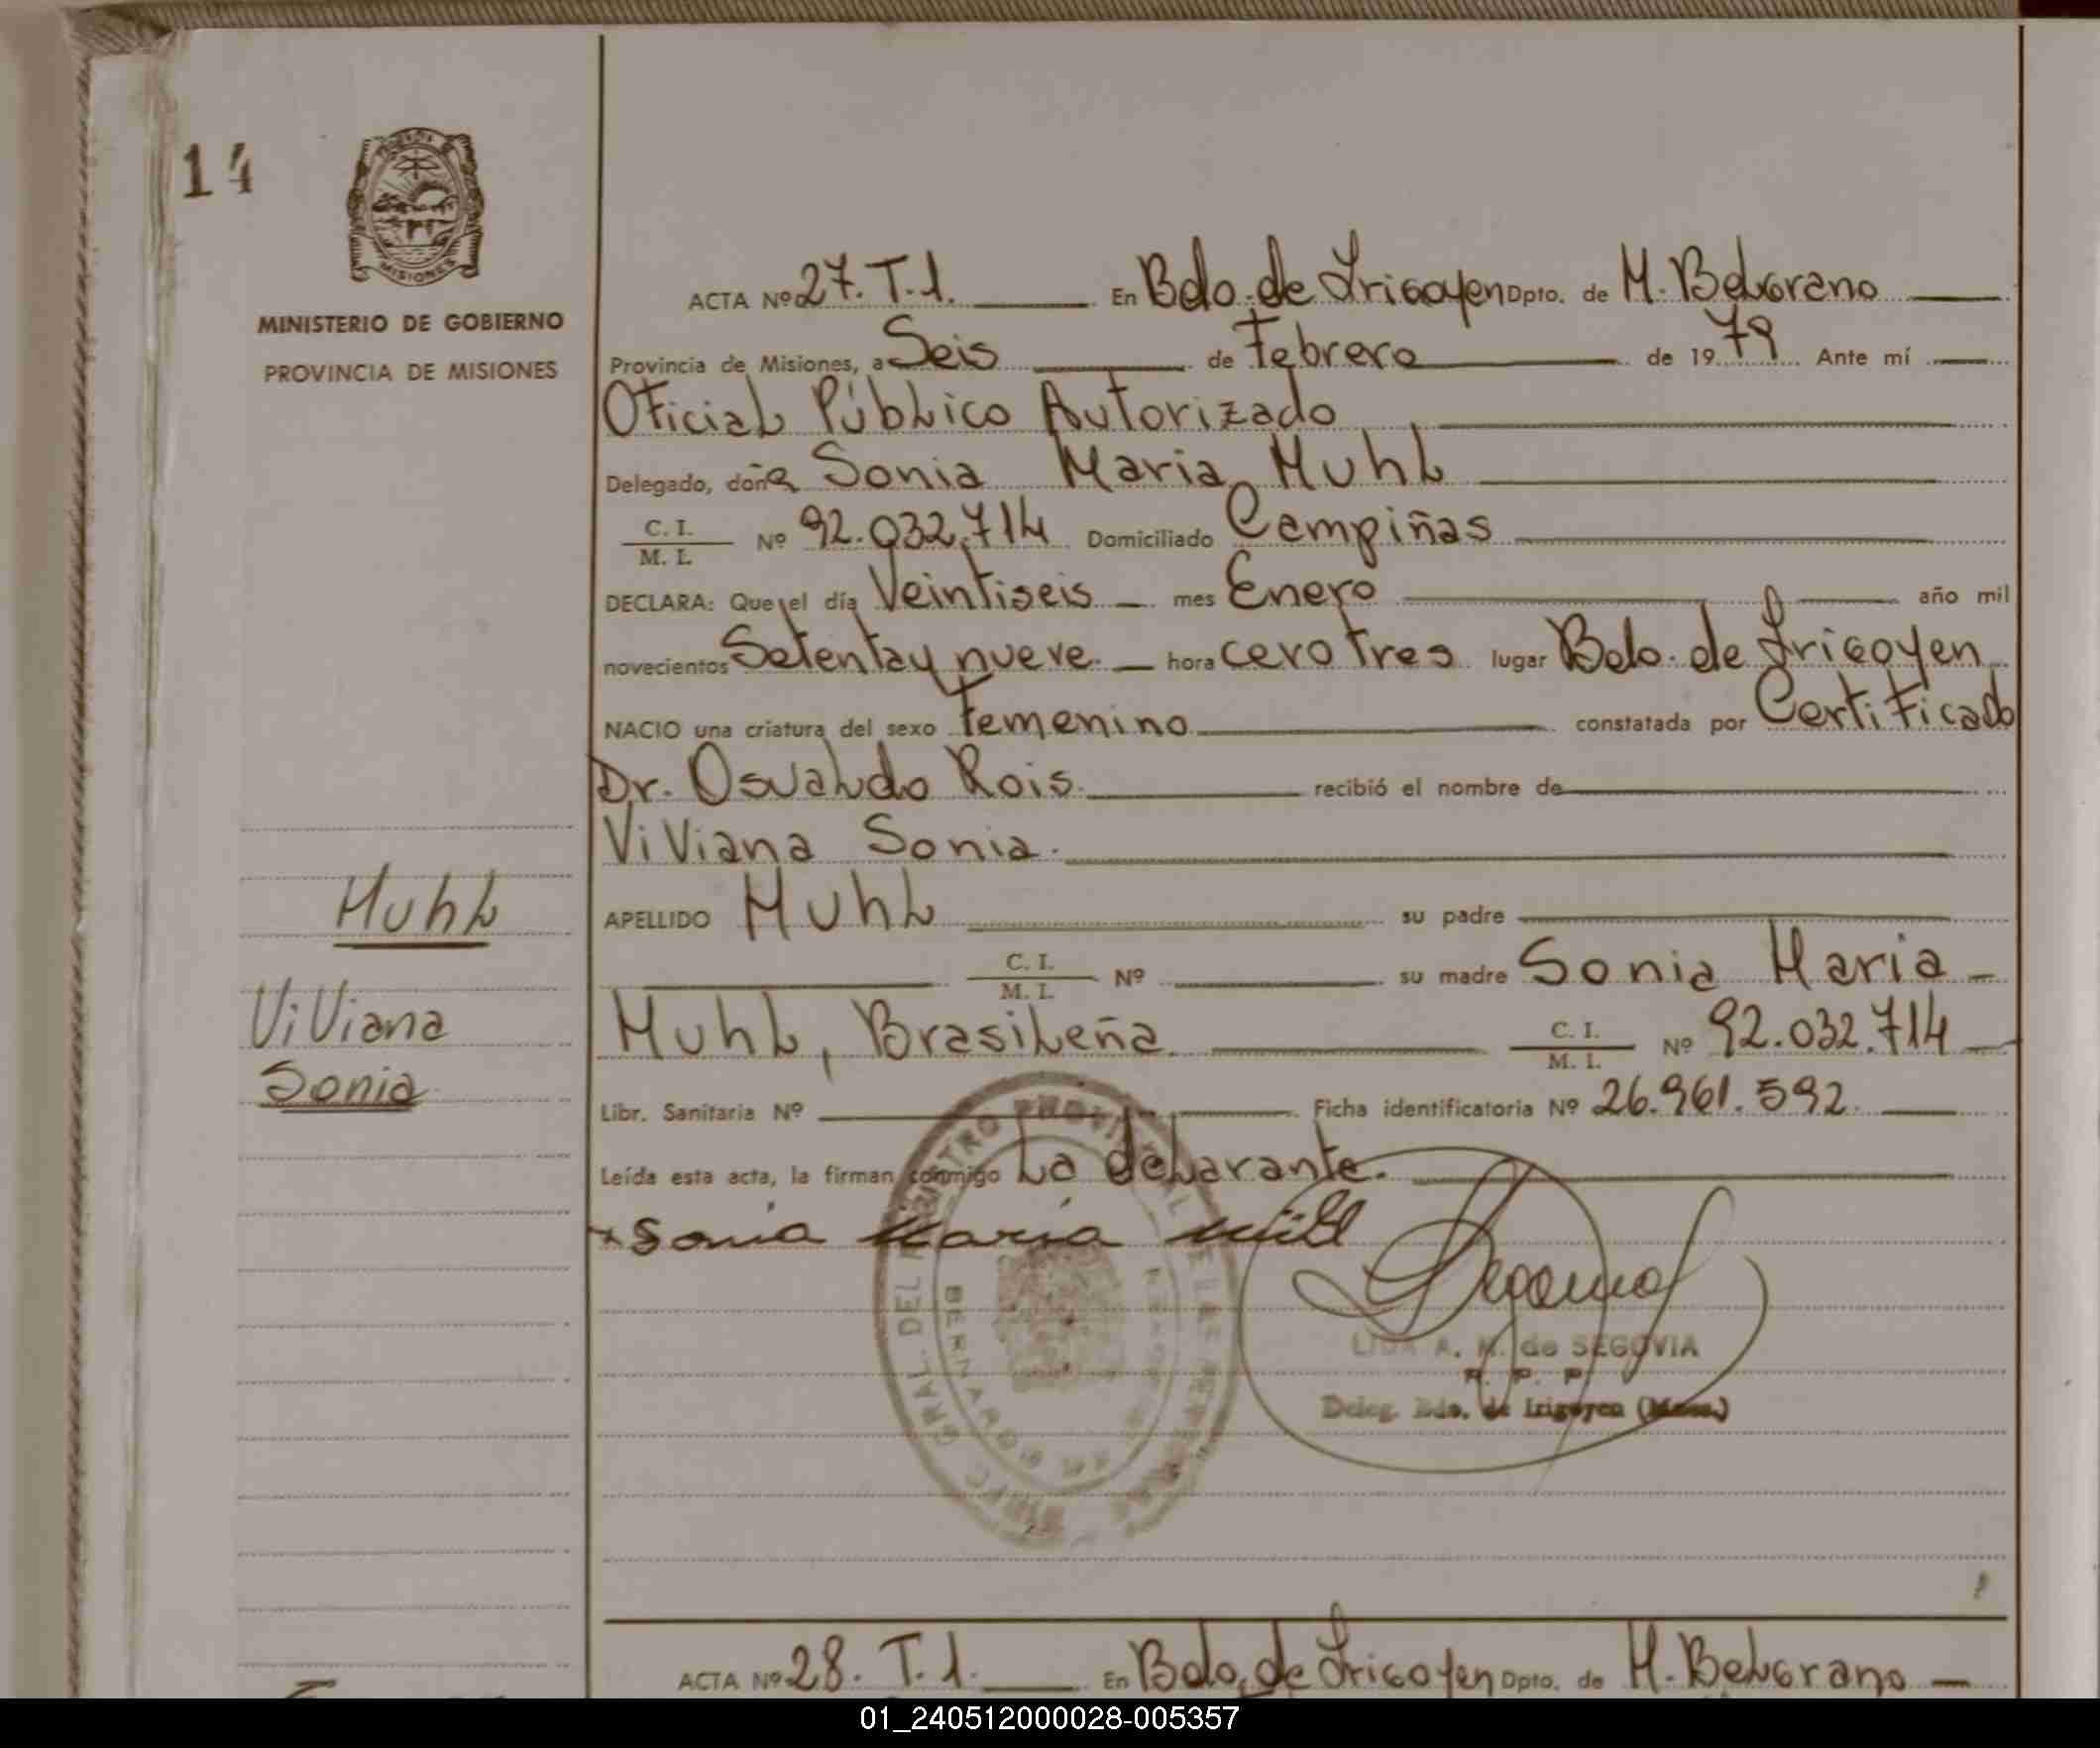 14
MISIONES
MINISTERIO DE GOBIERNO
PROVINCIA DE MISIONES
ACTA Nº 27. T.1. En Bdo. de Irigoyen Dpto. de M. Belgrano
Provincia de Misiones, a Seis de Febrero de 1979 Ante mí
Oficial Público Autorizado
Delegado, doña Sonia Maria Muhl
C. I. / M. I. Nº 92.032.714 Domiciliado Campiñas
DECLARA: Que el día Veintiseis mes Enero año mil
novecientos Setenta y nueve. hora cero tres lugar Bdo. de Irigoyen
NACIO una criatura del sexo Femenino constatada por Certificado
Dr. Osvaldo Rois. recibió el nombre de
Viviana Sonia.
Muhl
APELLIDO Muhl su padre
C. I. / M. I. Nº su madre Sonia Maria
Viviana
Muhl, Brasileña C. I. / M. I. Nº 92.032.714
Sonia
Libr. Sanitaria Nº Ficha identificatoria Nº 26.961.592.
Leída esta acta, la firman conmigo La declarante.
Sonia Maria Mühl
A. M. de SEGOVIA
Deleg. Bdo. de Irigoyen (Mnes.)
ACTA Nº 28. T.1. En Bdo. de Irigoyen Dpto. de M. Belgrano
01_240512000028-005357